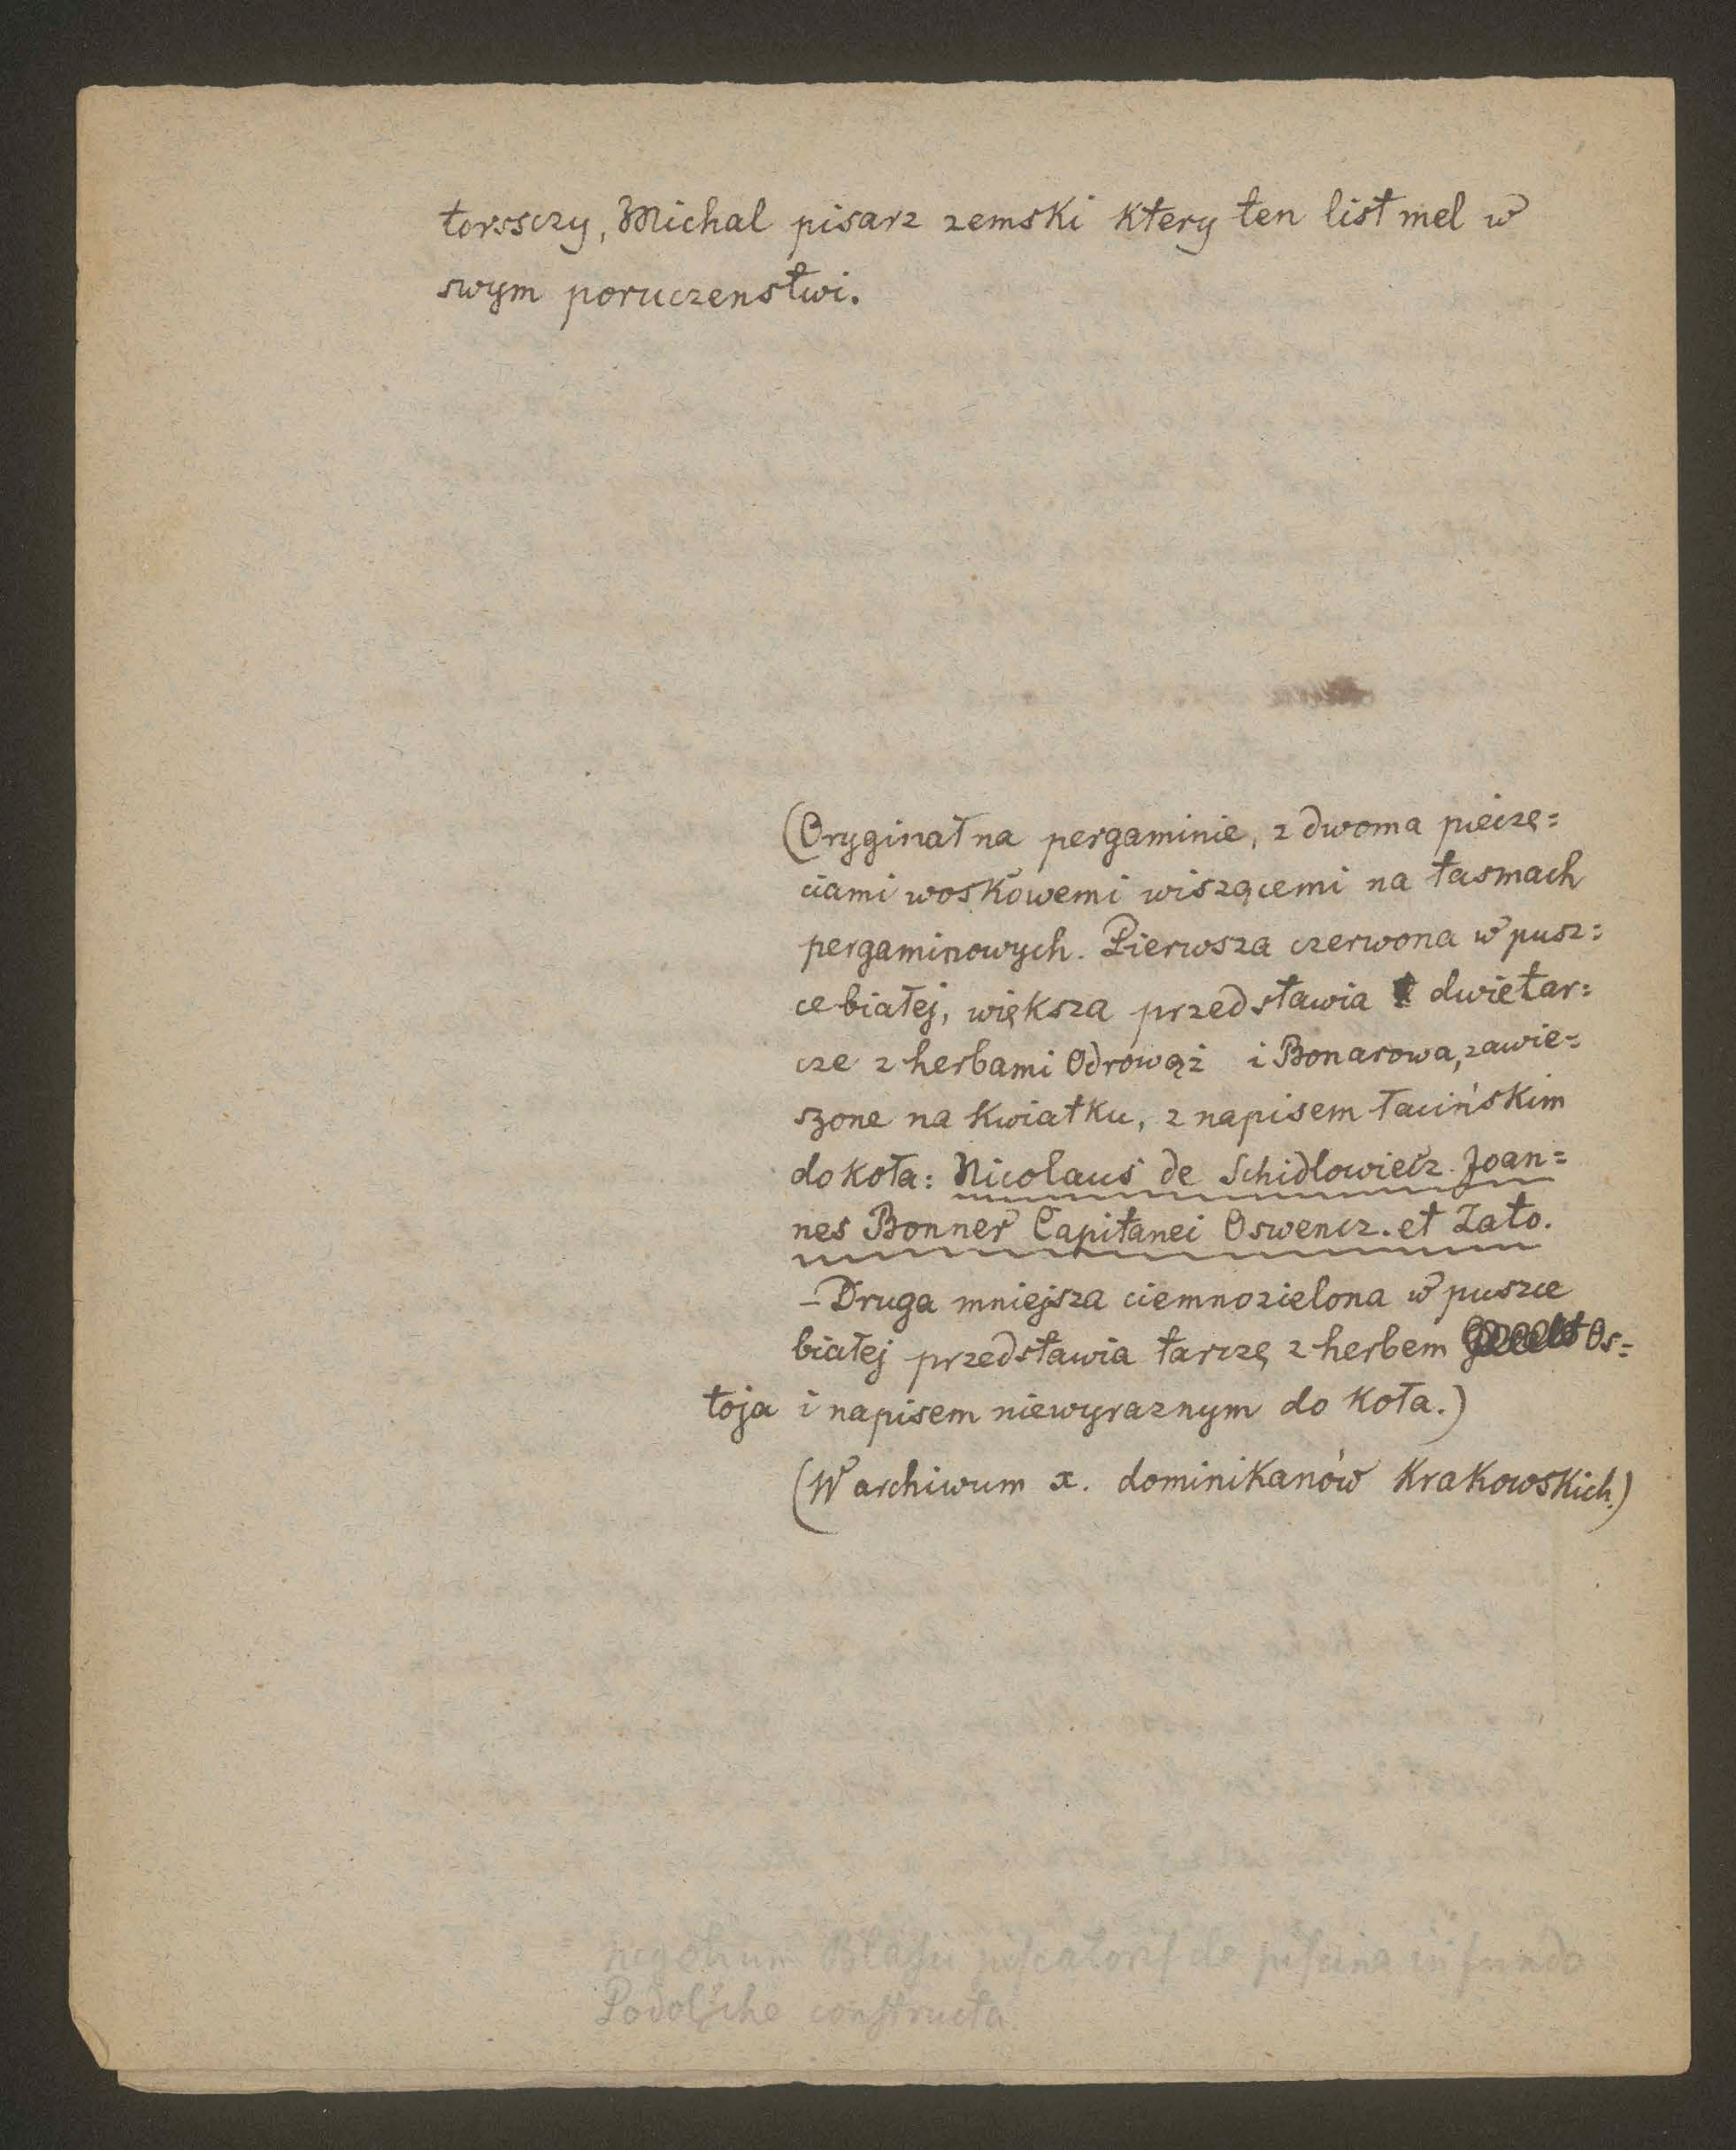 torssczy, Michal pisarz zemski ktery ten list mel w
swym poruczenstwi.
(Oryginał na pergaminie, z dwoma pieczę=
ciami woskowemi wiszącemi na tasmach
pergaminowych. Pierwsza czerwona w pusz=
ce białej, większa przedstawia dwie tar=
cze z herbami Odrowąż i Bonarowa, zawie=
szone na kwiatku, z napisem łacińskim
do koła: Nicolaus de Schidlowiecz. Joan=
nes Bonner Capitanei Oswencz. et Zato.
– Druga mniejsza ciemnozielona w puszce
białej przedstawia tarczę z herbem Os=
toja i napisem niewyraznym do koła.)
(W archiwum x. dominikanów Krakowskich.)
negotium Blasii piscatoris de piscina in fundo
Podolsche constructa.